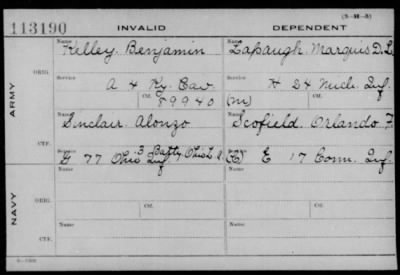 (3-M-3)
113190 INVALID DEPENDENT
Name Kelley. Benjamin Name Lapaugh. Marquis D. L
ARMY
ORIG.
Service A 4 Ky. Cav Service H 24 Mich. Inf.
Ctf. 89940 (M) Ctf.
Name Sinclair. Alonzo Name Scofield. Orlando F.
CTF.
Service G 77 Ohio Inf 3 Batty. Ohio L. Service E 17 Conn. Inf.
NAVY
Name Name
ORIG.
Service Ctf. Service Ctf.
Name Name
CTF.
Service Service